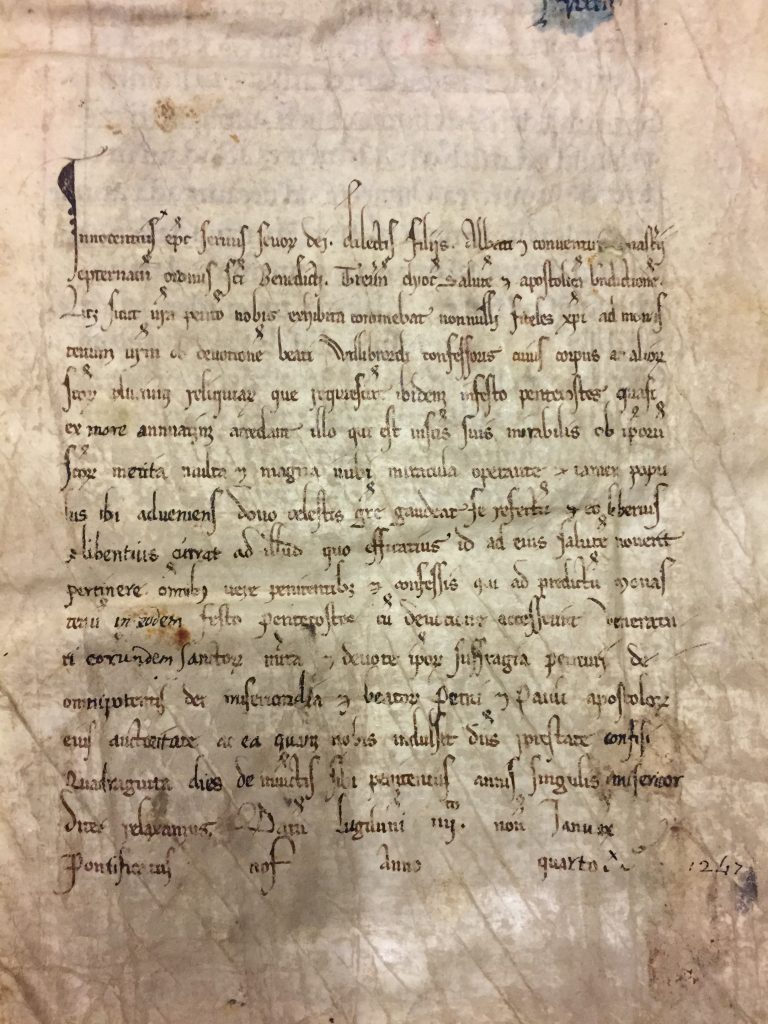 Innocentius epc servus servor dei. dilectis filijs. Abbati ⁊ conventui monastij
epternacn ordinis sci Benedicti. Trevin dyoc salute ⁊ apostolica bndictione.
Licz sicut vra petito nobis exhibita continebat nonnulli fideles xpi ad monas
terium vrm ob devotione beati Willibrordi confessoris cuius corpus ac alior
scor plurimor reliquiae que requiescut ibidem in festo pentecostes quasi
ex more annuatim accedant illo qui est in scis suis mirabilis ob ipsoru
scor merita multa ⁊ magna inibi miracula operante ⁊ tamen popu
lus ibi adveniens dono celestis gre gaudeat se refectu ⁊ eo liberius
⁊ libentius currat ad illud quo efficatius id ad eius salute noverit
pertinere omibus vere penitentibz ⁊ confessis qui ad predictu monas
teriu in eodem festo pentecostes cu devotione accesserint veneratu
ri eorundem sanctor mita ⁊ devote ipsor suffragia petituri de
omnipotentis dei misericordia ⁊ beator Petri ⁊ Pauli apostolor
eius auctoritate ac ea quam nobis indulsit dns potestate confisi
Quadraginta dies de iniuctis sibi penitentiis annis singulis misericor
diter relaxamus. Datu lugduni iiij. non Januar
Pontificatus nos Anno quarto 1247